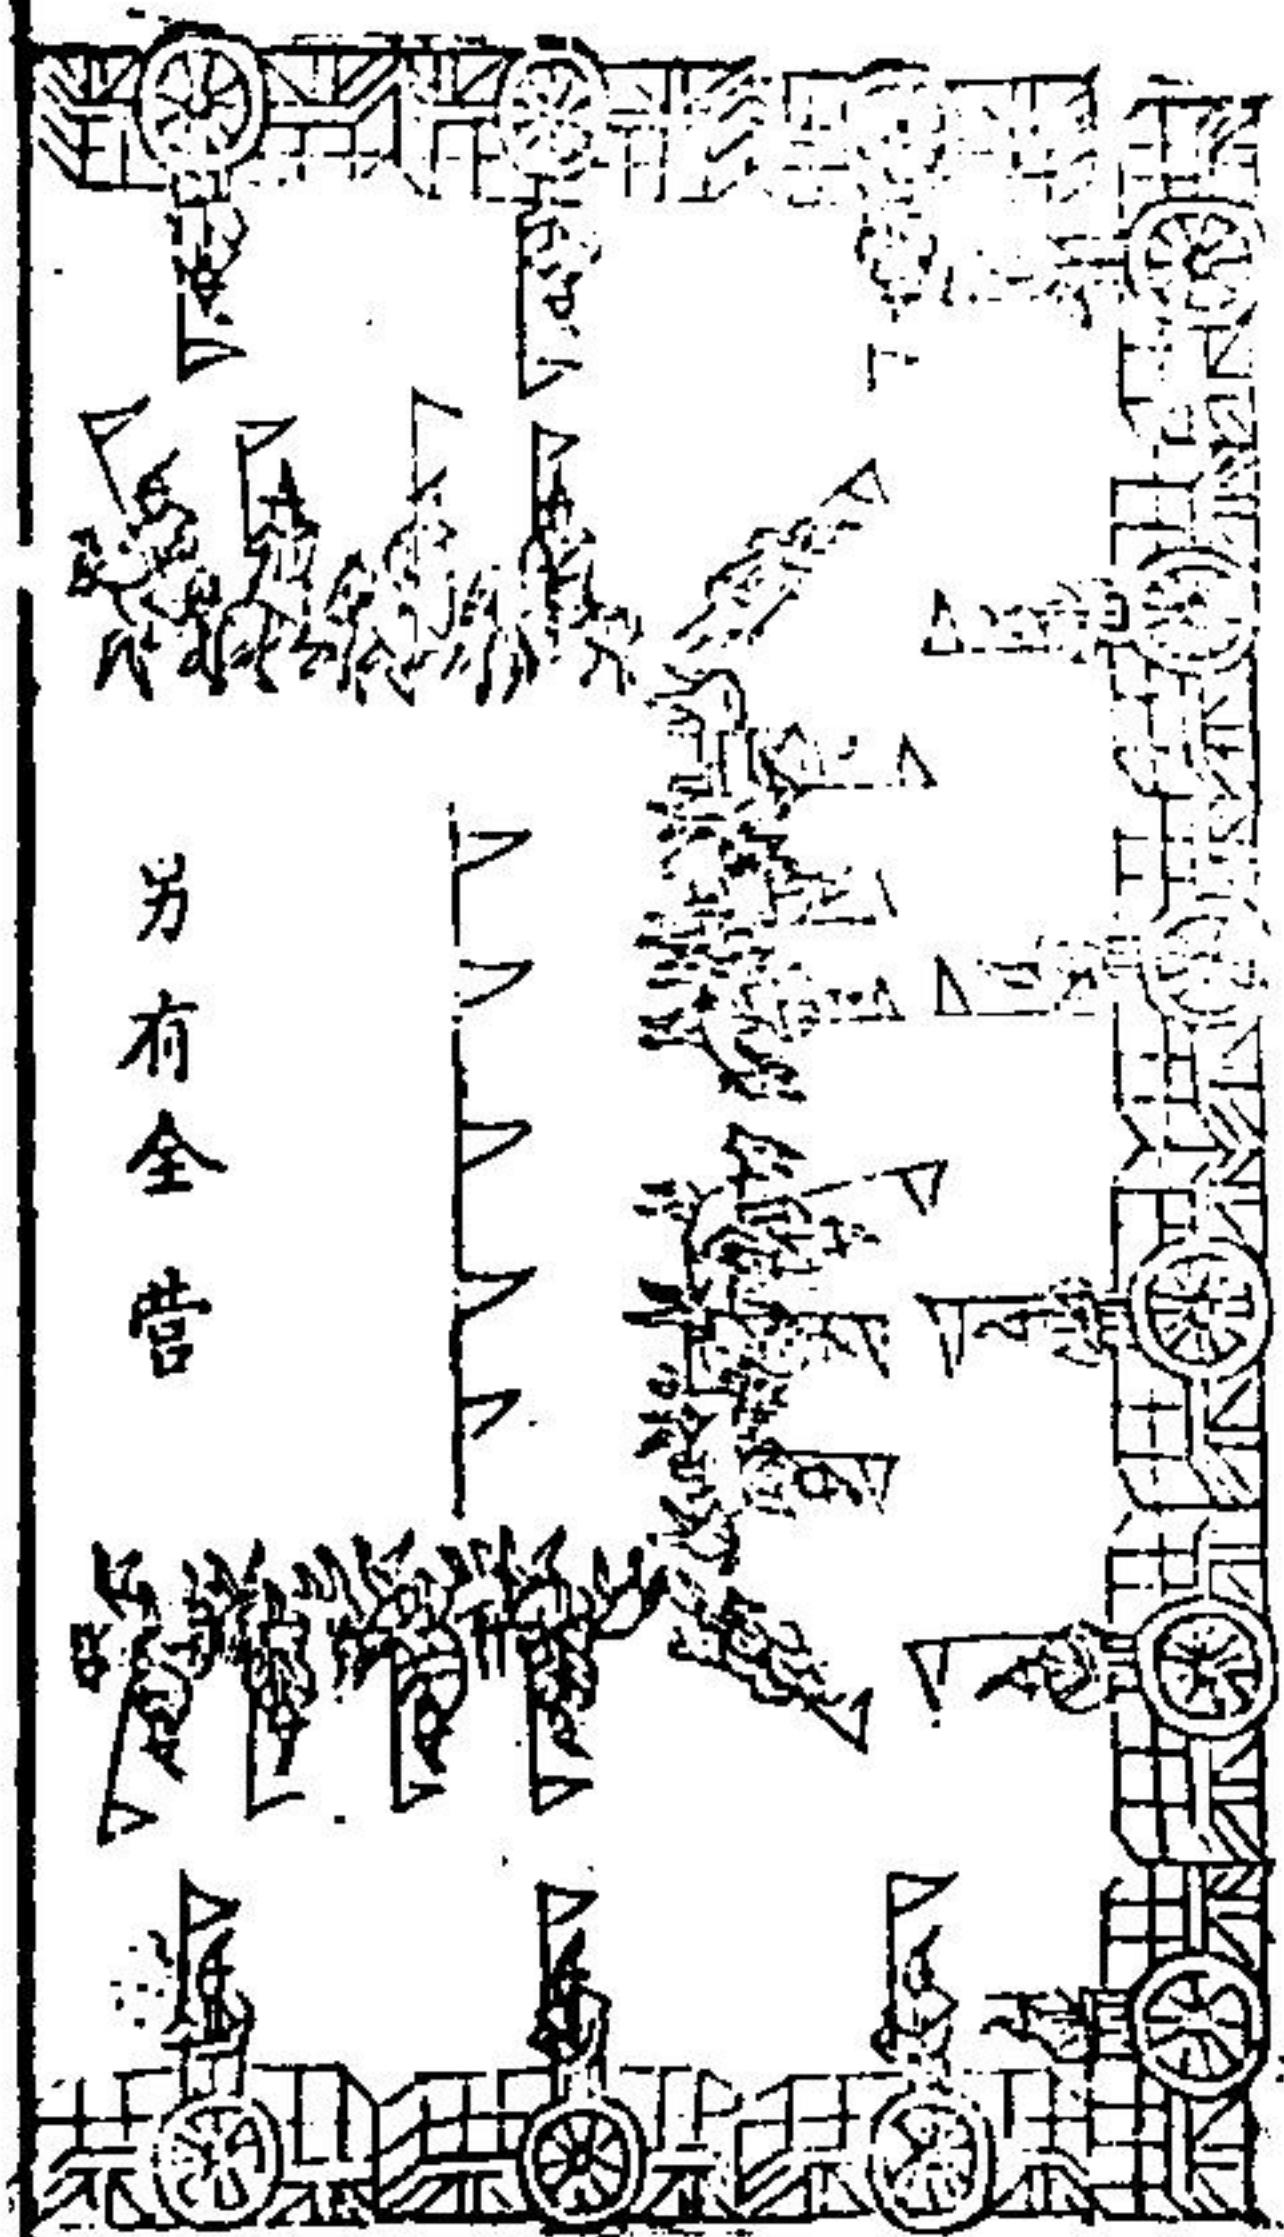 另有全营